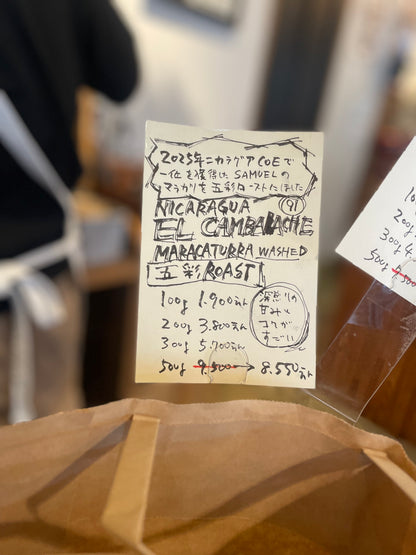 2025年ニカラグアCOEで
一位を獲得したSAMUELの
マラカツを五彩ローストにしました
NICARAGUA 91
EL CAMBALACHE
MARACATURRA WASHED
五彩 ROAST
100g 1.900えん
200g 3.800えん
300g 5.700えん
500g 9.500→8.550えん
深煎りの
甘みと
コクが
すごい
10
200g
300g 4
500g